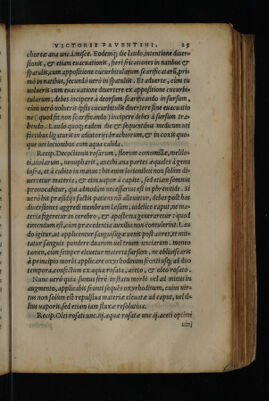 VICTORII FAVENTINI. 29
choreæ ana unc.i.misce. Eodemq; die laudo, intentione diuer-
sionis, & etiam euacuationis, fieri fricationes in natibus &
spatulis, cum appositione cucurbitularum scarificatarũ, pri-
mò in natibus, secundò uerò in spatulis. Et aduerte, cùm tu
uolueris cum euacuatione diuertere ex appositione cucurbi-
tularum, debes incipere à deorsum scarificando in sursum,
cùm uerò uolueris ipsis cucurbitulis diuertere sine euacuatio
ne (quod fit non scarificando) incipere debes à sursum tra-
hendo. Laudo quoq; eadem die & sequentibus medicum uti
fortibus ligaturis in adiutorijs brachiorum, & in coxis quo-
que aut lotionibus cum aqua calida.
Recip. Decoctionis rosarum, florum camomillæ, melilo-
ti, uiolarum, nenupharis, aneth ana partes æquales à genu
infra, & à cubito in manus: his enim lotionibus non solùm di-
uertetur materia, & eius uapor à capite, sed etiam somnus
prouocabitur, qui admodum necessarius est in phrenitide. Si
uerò his præsidijs factis patiens nõ conualuerit, debet post has
diuersiones aggredi membrum læsum, uidelicet caput, ne ma-
teria figeretur in cerebro, & apostema generaretur: quod
tendendum est, cùm præcedentia auxilia non contulerint. Lau
do igitur, ut applicentur sanguisugæ uenis post aures, et mit-
tatur sanguis pondere duarum uel trium unciarum, momen-
taneum, cùm semper eleuetur materia sursum, ne obliuiscaris
à principio morbi applicare oxyrhodinum frontis usq; ad duo
tempora, confectum ex aqua rosata, aceto, & oleo rosato.
Nunc uerò quia sumus ferè in statu morbi uel ad minus in
augmento, applicabis fronti sequẽs oxyrhodinum, cuius uir-
tus non solùm est repulsiua materiæ eleuatæ ad caput, uel il-
lius uaporis, sed etiam iam fluxæ resolutiua.
Recip. Olei rosati unc.iiij. aquæ rosatæ unc.ij. aceti optimi